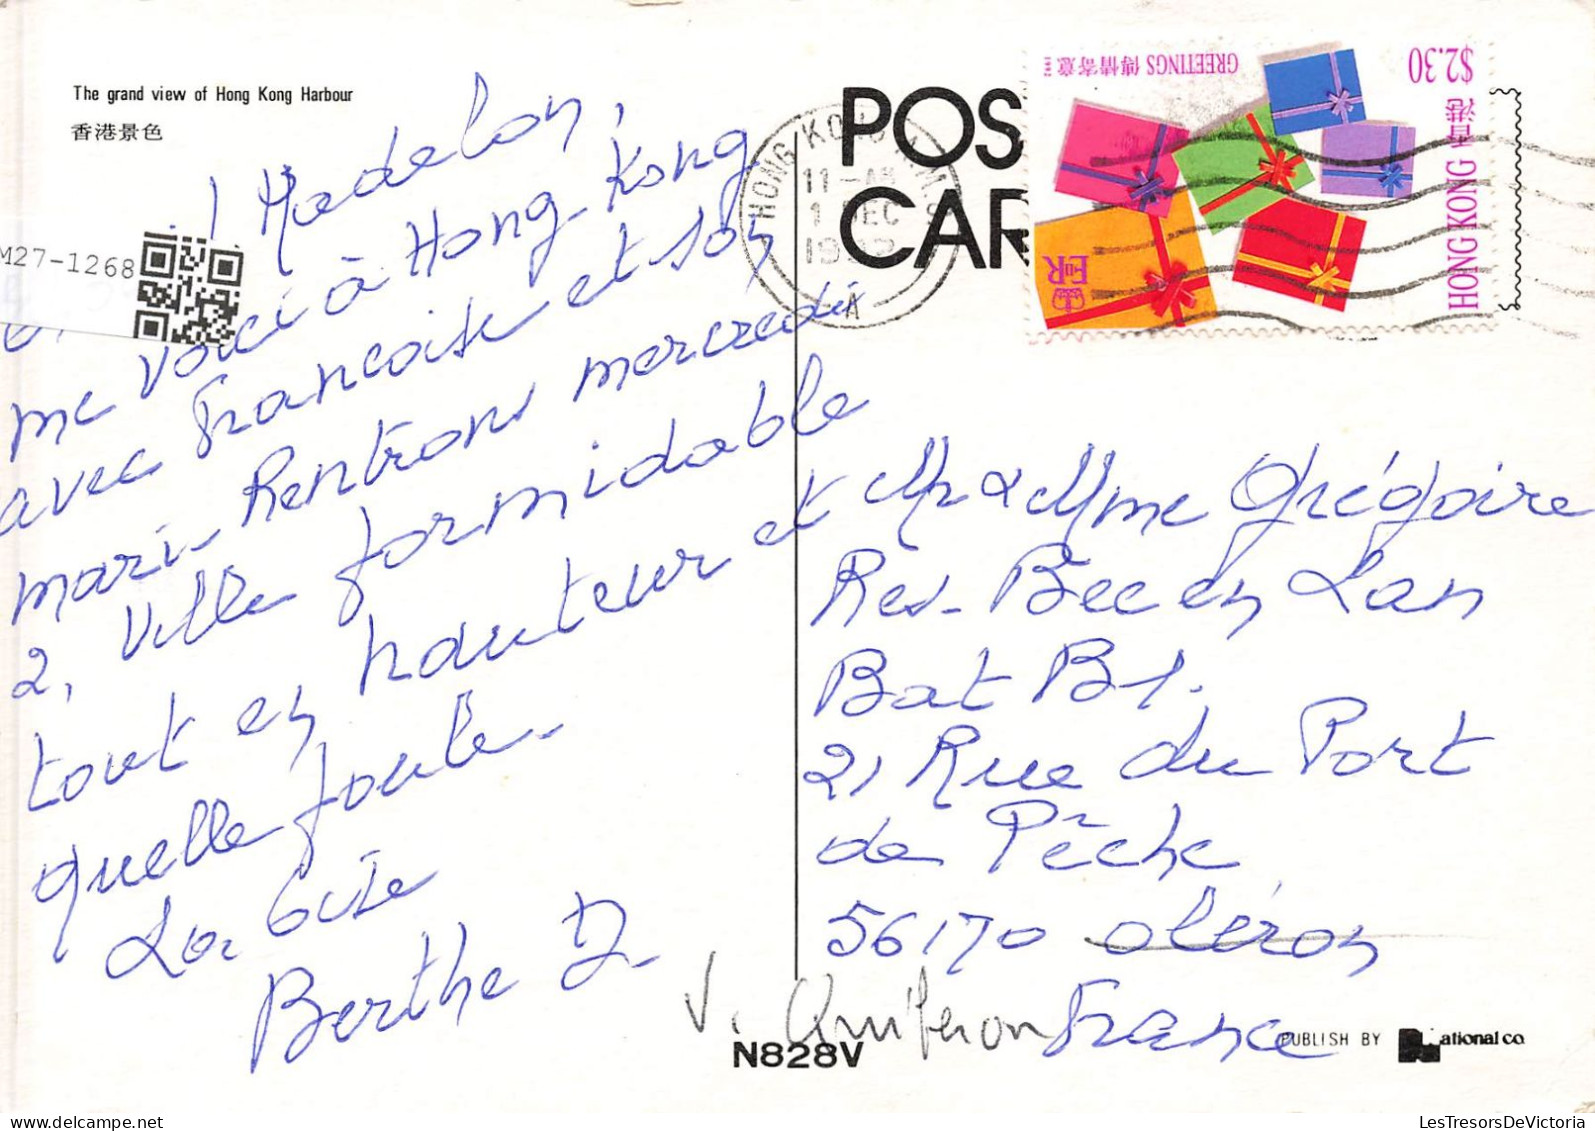 The grand view of Hong Kong Harbour
香港景色
M27-1268
Madelon,
me voici à Hong-Kong
avec Francoise et son
mari. Rentrons mercredi
2, Ville formidable
tout en hauteur et
quelle foule.
La bise
Berthe D.
POS
CAR
HONG KONG
11-AM
1 DEC
19
A
GREETINGS 傳情寄意
$2.30
HONG KONG 香港
Mr & Mme Grégoire
Res. Bec en Lan
Bat B1.
21 Rue du Port
de Pêche
56170 oléron
V. Quiberon
France
N828V
PUBLISH BY
National co
LesTresorsDeVictoria